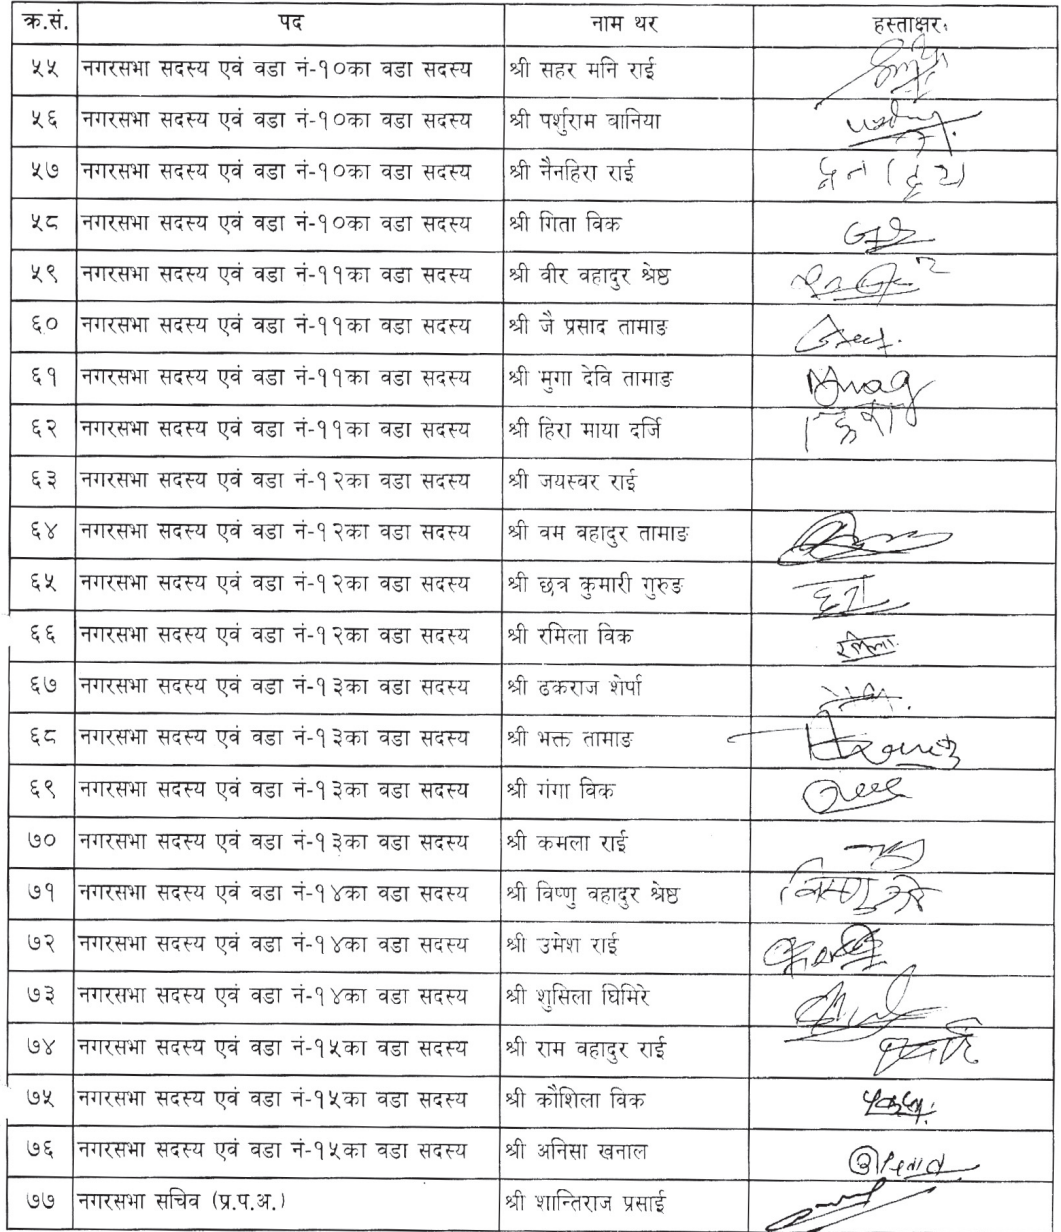 क्र.सं. पद नाम थर हस्ताक्षर
५५ नगरसभा सदस्य एवं वडा नं-१०का वडा सदस्य श्री सहर मनि राई
५६ नगरसभा सदस्य एवं वडा नं-१०का वडा सदस्य श्री पर्शुराम वानिया
५७ नगरसभा सदस्य एवं वडा नं-१०का वडा सदस्य श्री नैनहिरा राई
५८ नगरसभा सदस्य एवं वडा नं-१०का वडा सदस्य श्री गिता विक
५९ नगरसभा सदस्य एवं वडा नं-११का वडा सदस्य श्री वीर वहादुर श्रेष्ठ
६० नगरसभा सदस्य एवं वडा नं-११का वडा सदस्य श्री जै प्रसाद तामाङ
६१ नगरसभा सदस्य एवं वडा नं-११का वडा सदस्य श्री मुगा देवि तामाङ
६२ नगरसभा सदस्य एवं वडा नं-११का वडा सदस्य श्री हिरा माया दर्जि
६३ नगरसभा सदस्य एवं वडा नं-१२का वडा सदस्य श्री जयस्वर राई
६४ नगरसभा सदस्य एवं वडा नं-१२का वडा सदस्य श्री वम वहादुर तामाङ
६५ नगरसभा सदस्य एवं वडा नं-१२का वडा सदस्य श्री छत्र कुमारी गुरुङ
६६ नगरसभा सदस्य एवं वडा नं-१२का वडा सदस्य श्री रमिला विक रमिला
६७ नगरसभा सदस्य एवं वडा नं-१३का वडा सदस्य श्री ढकराज शेर्पा
६८ नगरसभा सदस्य एवं वडा नं-१३का वडा सदस्य श्री भक्त तामाङ
६९ नगरसभा सदस्य एवं वडा नं-१३का वडा सदस्य श्री गंगा विक
७० नगरसभा सदस्य एवं वडा नं-१३का वडा सदस्य श्री कमला राई
७१ नगरसभा सदस्य एवं वडा नं-१४का वडा सदस्य श्री विष्णु वहादुर श्रेष्ठ
७२ नगरसभा सदस्य एवं वडा नं-१४का वडा सदस्य श्री उमेश राई
७३ नगरसभा सदस्य एवं वडा नं-१४का वडा सदस्य श्री शुसिला घिमिरे
७४ नगरसभा सदस्य एवं वडा नं-१५का वडा सदस्य श्री राम वहादुर राई
७५ नगरसभा सदस्य एवं वडा नं-१५का वडा सदस्य श्री कौशिला विक
७६ नगरसभा सदस्य एवं वडा नं-१५का वडा सदस्य श्री अनिसा खनाल
७७ नगरसभा सचिव (प्र.प.अ.) श्री शान्तिराज प्रसाई